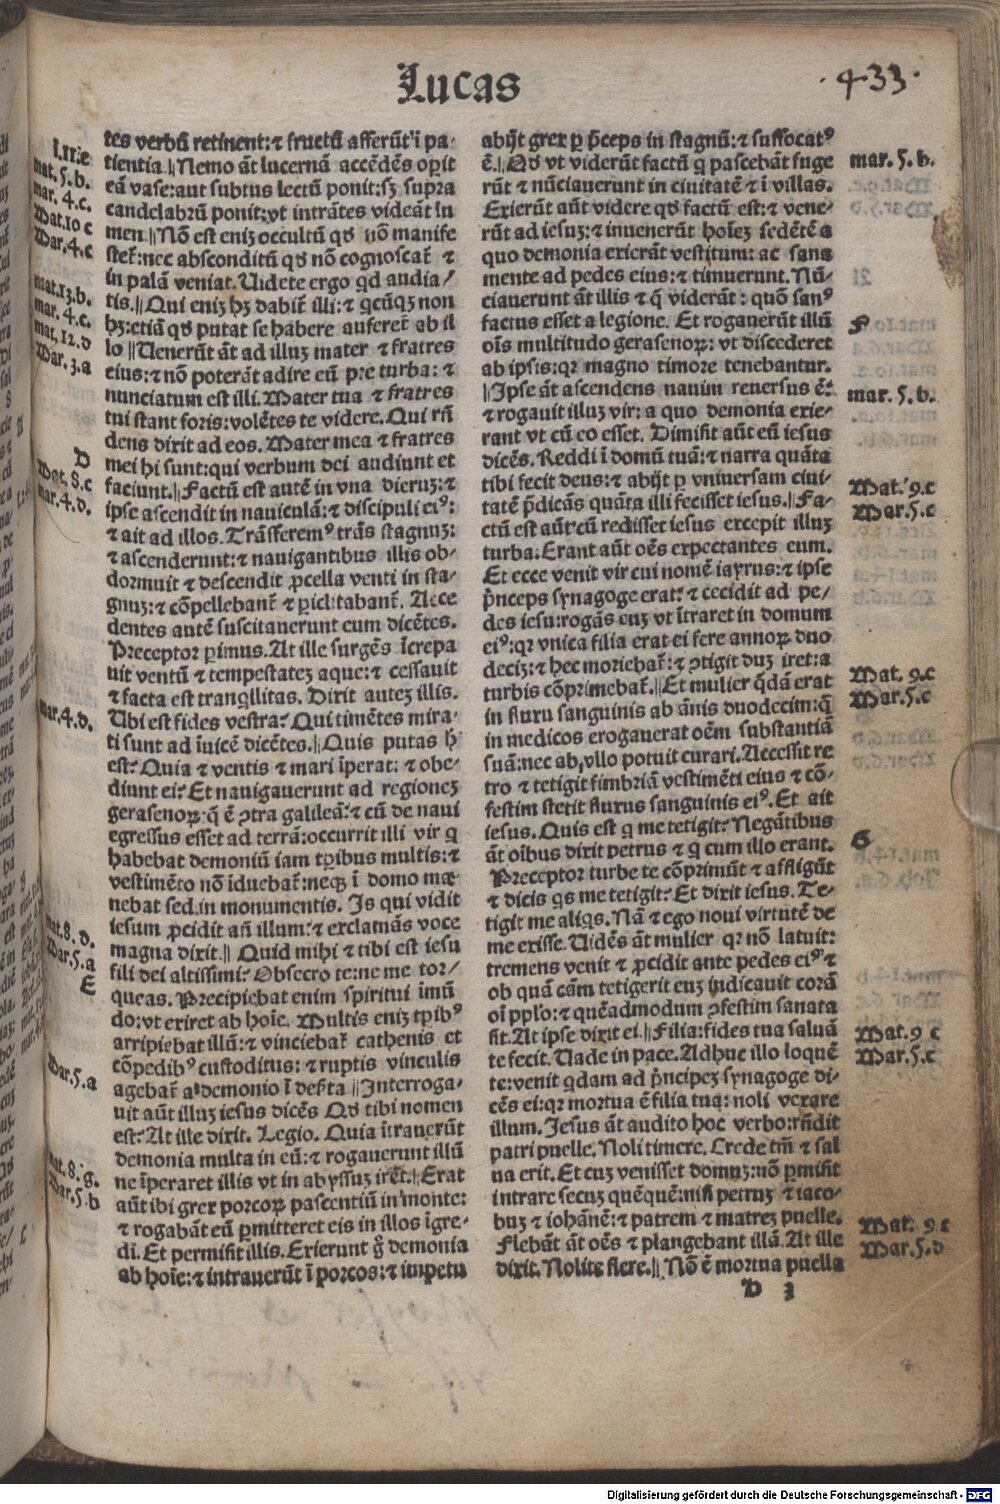 Lucas
·433·
tes verbū retinent:⁊ fructū afferūt ī pa-
tientia.||Nemo āt lucernā accēdēs opīt
eā vase:aut subtus lectū ponit:sꝫ supra
candelabrū ponit:vt intrātes videāt lu
men||Nō est eniꝫ occultū qđ nō manife
stet̄:nec absconditū qđ nō cognoscat̄ ⁊
in palā veniat. Uidete ergo qd audia/
tis.||Qui eniꝫ hꝫ dabit̄ illi:⁊ q̄cūqꝫ non
hꝫ:etiā qđ putat se habere auferet̄ ab il
lo||Uenerūt āt ad illuꝫ mater ⁊ fratres
eius:⁊ nō poterāt adire eū pre turba: ⁊
nunciatum est illi. Mater tua ⁊ fratres
tui stant foris:volētes te videre. Qui rn̄
dens dixit ad eos. Mater mea ⁊ fratres
mei hi sunt:qui verbum dei audiunt et
faciunt.||Factū est autē in vna dieruꝫ:⁊
ipse ascendit in nauiculā:⁊ discipuli eiꝰ:
⁊ ait ad illos. Trāsferemꝰ trās stagnuꝫ:
⁊ ascenderunt:⁊ nauigantibus illis ob-
dormuit ⁊ descendit ꝓcella venti in sta-
gnuꝫ:⁊ cōpellebant̄ ⁊ ꝑiclitabant̄. Acce
dentes autē suscitauerunt eum dicētes.
Preceptor ꝑimus. At ille surgēs īcrepa
uit ventū ⁊ tempestateꝫ aque:⁊ cessauit
⁊ facta est tranqllitas. Dixit auteꝫ illis.
Ubi est fides vestra? Qui timētes mira-
ti sunt ad īuicē dicētes.||Quis putas h̄
est? Quia ⁊ ventis ⁊ mari īperat: ⁊ obe-
diunt ei? Et nauigauerunt ad regioneꝫ
gerasenoꝝ:q̄ ē ꝯtra galileā:⁊ cū de naui
egressus esset ad terrā:occurrit illi vir q
habebat demoniū iam tꝑibus multis:⁊
vestimēto nō īduebat̄:neqꝫ ī domo ma-
nebat sed in monumentis. Is qui vidit
iesum ꝓcidit an̄ illum:⁊ exclamās voce
magna dixit.|| Quid mihi ⁊ tibi est iesu
fili dei altissimi? Obsecro te:ne me tor/
queas. Precipiebat enim spiritui īmū
do:vt exiret ab hoīe. Multis eniꝫ tꝑibꝰ
arripiebat illū:⁊ vinciebat̄ cathenis et
cōpedibꝰ custoditus:⁊ ruptis vinculis
agebat̄ a demonio ī deserta||Interroga-
uit aūt illuꝫ iesus dicēs Qđ tibi nomen
est? At ille dixit. Legio. Quia ītrauerūt
demonia multa in eū:⁊ rogauerunt illū
ne īperaret illis vt in abyssuꝫ irēt.||Erat
aūt ibi grex porcoꝝ pascentiū in monte:
⁊ rogabāt eū ꝑmitteret eis in illos īgre-
di. Et permisit illis. Exierunt g̊ demonia
ab hoīe:⁊ intrauerūt ī porcos:⁊ impetu
abijt grex ꝑ p̄ceps in stagnū:⁊ suffocatꝰ
ē.||Qđ vt viderūt factū q pascebāt fuge
rūt ⁊ nūciauerunt in ciuitatē ⁊ ī villas.
Exierūt aūt videre qđ factū est:⁊ vene-
rūt ad iesuꝫ:⁊ inuenerūt hoīeꝫ sedētē a
quo demonia exierāt vestitum: ac sana
mente ad pedes eius:⁊ timuerunt. Nū-
ciauerunt āt illis ⁊ q̄ viderāt: quō sanꝰ
factus esset a legione. Et rogauerūt illū
oīs multitudo gerasenoꝝ: vt discederet
ab ipsis:qꝛ magno timore tenebantur.
||Ipse āt ascendens nauim reuersus ē:
⁊ rogauit illuꝫ vir: a quo demonia exie-
rant vt cū eo esset. Dimisit aūt eū iesus
dicēs. Reddi ī domū tuā:⁊ narra quāta
tibi fecit deus:⁊ abijt ꝑ vniuersam ciui-
tatē p̄dicās quāta illi fecisset iesus.||Fa-
ctū est aūt:cū redisset iesus excepit illuꝫ
turba. Erant aūt oēs expectantes eum.
Et ecce venit vir cui nomē iayrus:⁊ ipse
p̄nceps synagoge erat:⁊ cecidit ad pe/
des iesu:rogās euꝫ vt ītraret in domum
eiꝰ:qꝛ vnica filia erat ei fere annoꝝ duo
deciꝫ:⁊ hec moriebat̄:⁊ ꝯtigit duꝫ iret:a
turbis cōprimebat̄.||Et mulier q̄dā erat
in fluxu sanguinis ab ānis duodecim:q̄
in medicos erogauerat oēm substantiā
suā:nec ab vllo potuit curari. Accessit re
tro ⁊ tetigit fimbriā vestimēti eius ⁊ cō-
festim stetit fluxus sanguinis eiꝰ. Et ait
iesus. Quis est q me tetigit? Negātibus
āt oībus dixit petrus ⁊ q cum illo erant.
Preceptor turbe te cōprimūt ⁊ affligūt
⁊ dicis qs me tetigit? Et dixit iesus. Te-
tigit me aliqs. Nā ⁊ ego noui virtutē de
me exisse. Uidēs āt mulier qꝛ nō latuit:
tremens venit ⁊ ꝓcidit ante pedes eiꝰ ⁊
ob quā cām tetigerit euꝫ indicauit corā
oī pplo:⁊ quēadmodum ꝯfestim sanata
sit. At ipse dixit ei.||Filia:fides tua saluā
te fecit. Uade in pace. Adhuc illo loquē
te:venit qdam ad p̄ncipeꝫ synagoge di-
cēs ei:qꝛ mortua ē filia tua: noli vexare
illum. Jesus āt audito hoc verbo:rn̄dit
patri puelle. Noli timere. Crede tm̄ ⁊ sal
ua erit. Et cuꝫ venisset domuꝫ:nō ꝑmisit
intrare secuꝫ quēquē:nisi petruꝫ ⁊ iaco-
buꝫ ⁊ iohānē:⁊ patrem ⁊ matreꝫ puelle.
Flebāt āt oēs ⁊ plangebant illā. At ille
dixit. Nolite flere.||Nō ē mortua puella
D 3
mat. 5. b.
mar. 4. c.
Mat. 10 c
Mar. 4. c
mat. 13. b.
mar. 4. c.
mat. 12. d
Mar. 3. a
D
Mat. 8. c
mar. 4. d.
mar. 4. d.
mat. 8. d.
Mar. 5. a
E
Mar. 5. a
mat. 8. g.
Mar. 5. b
mar. 5. b.
F
mar. 5. b.
Mat. 9. c
Mar. 5. c
Mat. 9. c
Mar. 5. c
G
Mat. 9 c
Mar. 5. c
Mat. 9. c
Mar. 5. d
Digitalisierung gefördert durch die Deutsche Forschungsgemeinschaft - DFG